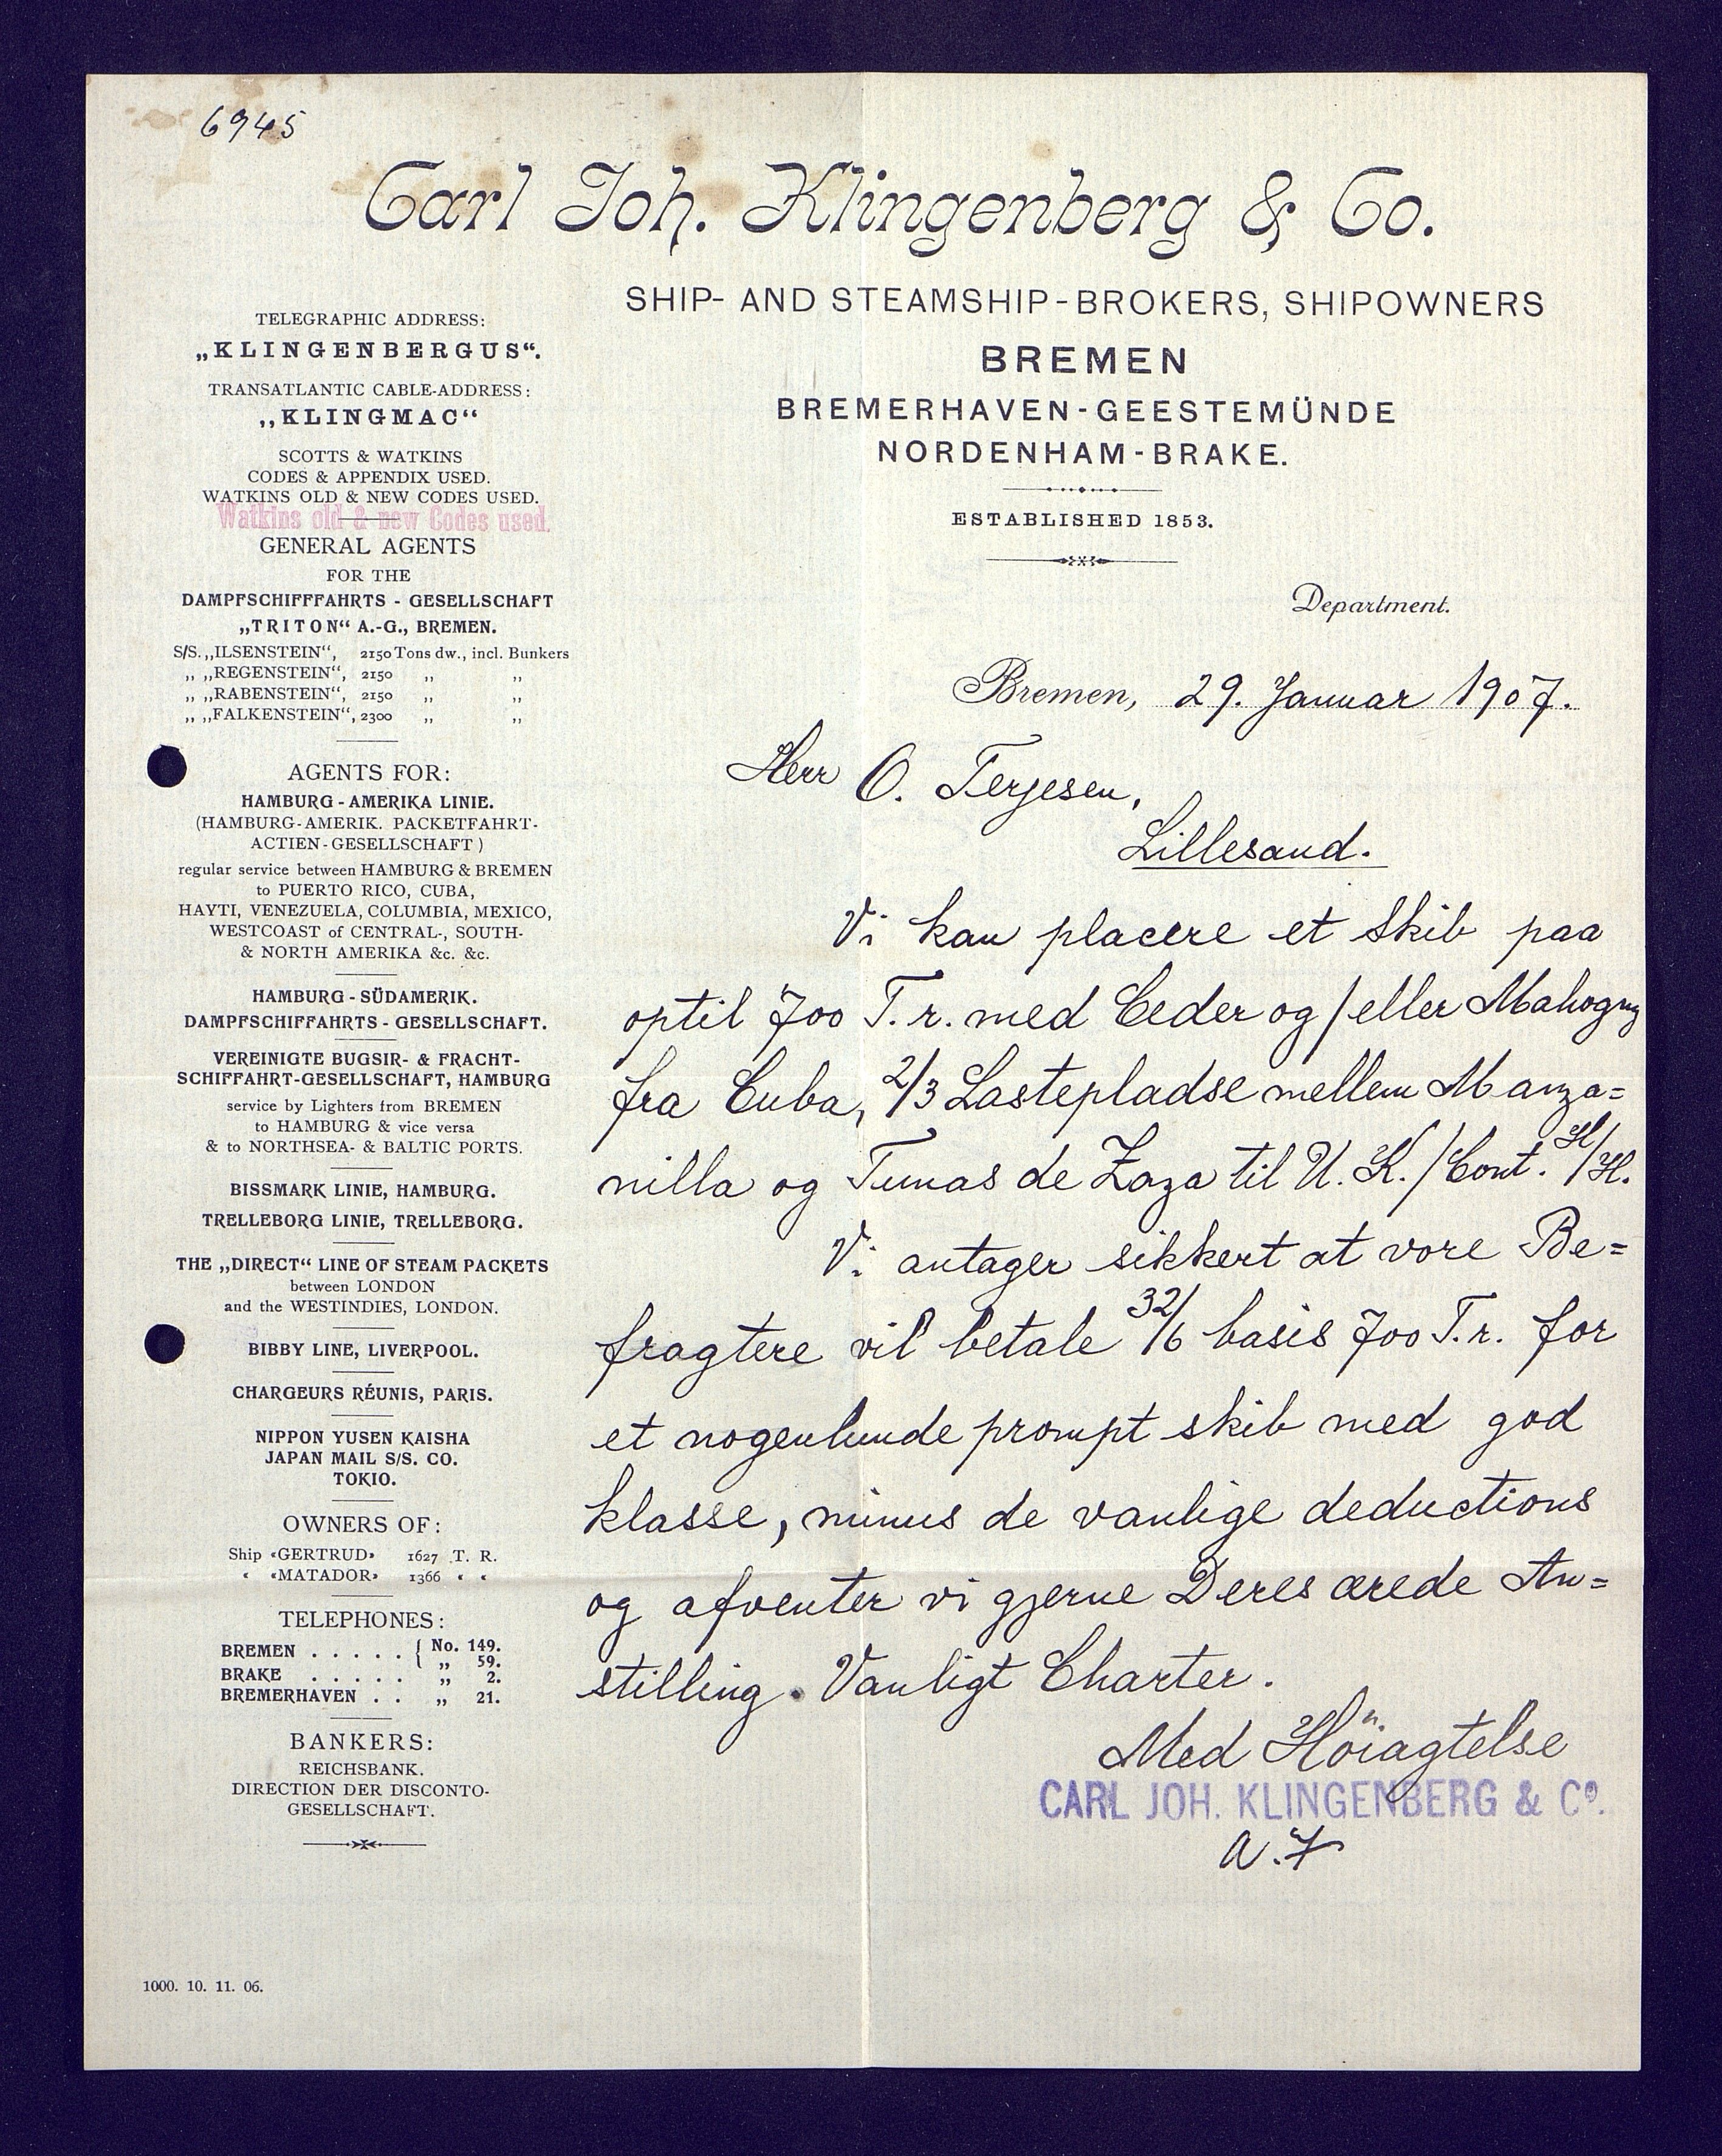 6945
Carl Joh. Klingenberg & Co.
SHIP- AND STEAMSHIP-BROKERS, SHIPOWNERS
BREMEN
BREMERHAVEN-GEESTEMÜNDE
NORDENHAM-BRAKE.
ESTABLISHED 1853.
TELEGRAPHIC ADDRESS:
„KLINGENBERGUS“.
TRANSATLANTIC CABLE-ADDRESS:
„KLINGMAC“
SCOTTS & WATKINS
CODES & APPENDIX USED.
WATKINS OLD & NEW CODES USED.
Watkins old & new Codes used.
GENERAL AGENTS
FOR THE
DAMPFSCHIFFFAHRTS - GESELLSCHAFT
„TRITON“ A.-G., BREMEN.
S/S. „ILSENSTEIN“, 2150 Tons dw., incl. Bunkers
„ „REGENSTEIN“, 2150 „ „
„ „RABENSTEIN“, 2150 „ „
„ „FALKENSTEIN“, 2300 „ „
AGENTS FOR:
HAMBURG-AMERIKA LINIE.
(HAMBURG-AMERIK. PACKETFAHRT-
ACTIEN-GESELLSCHAFT)
regular service between HAMBURG & BREMEN
to PUERTO RICO, CUBA,
HAYTI, VENEZUELA, COLUMBIA, MEXICO,
WESTCOAST of CENTRAL-, SOUTH-
& NORTH AMERIKA &c. &c.
HAMBURG-SÜDAMERIK.
DAMPFSCHIFFAHRTS-GESELLSCHAFT.
VEREINIGTE BUGSIR- & FRACHT-
SCHIFFAHRT-GESELLSCHAFT, HAMBURG
service by Lighters from BREMEN
to HAMBURG & vice versa
& to NORTHSEA- & BALTIC PORTS.
BISSMARK LINIE, HAMBURG.
TRELLEBORG LINIE, TRELLEBORG.
THE „DIRECT“ LINE OF STEAM PACKETS
between LONDON
and the WESTINDIES, LONDON.
BIBBY LINE, LIVERPOOL.
CHARGEURS RÉUNIS, PARIS.
NIPPON YUSEN KAISHA
JAPAN MAIL S/S. CO.
TOKIO.
OWNERS OF:
Ship «GERTRUD» 1627 T. R.
« «MATADOR» 1366 « «
TELEPHONES:
BREMEN . . . . . { No. 149.
„ 59.
BRAKE . . . . . „ 2.
BREMERHAVEN . . „ 21.
BANKERS:
REICHSBANK.
DIRECTION DER DISCONTO-
GESELLSCHAFT.
1000. 10. 11. 06.
Department.
Bremen, 29. Januar 1907.
Herr O. Terjesen,
Lillesand.
Vi kan placere et Skib paa
optil 700 T. r. med Ceder og/eller Mahogny
fra Cuba, 2/3 Lastepladse mellem Manza=
nilla og Tunas de Zaza til U. K./Cont. H/H.
Vi antager sikkert at vore Be=
fragtere vil betale 32/6 basis 700 T. r. for
et nogenlunde prompt skib med god
klasse, minus de vanlige deductions
og afventer vi gjerne Deres ærede An=
stilling. Vanligt Charter.
Med Höiagtelse
CARL JOH. KLINGENBERG & Co.